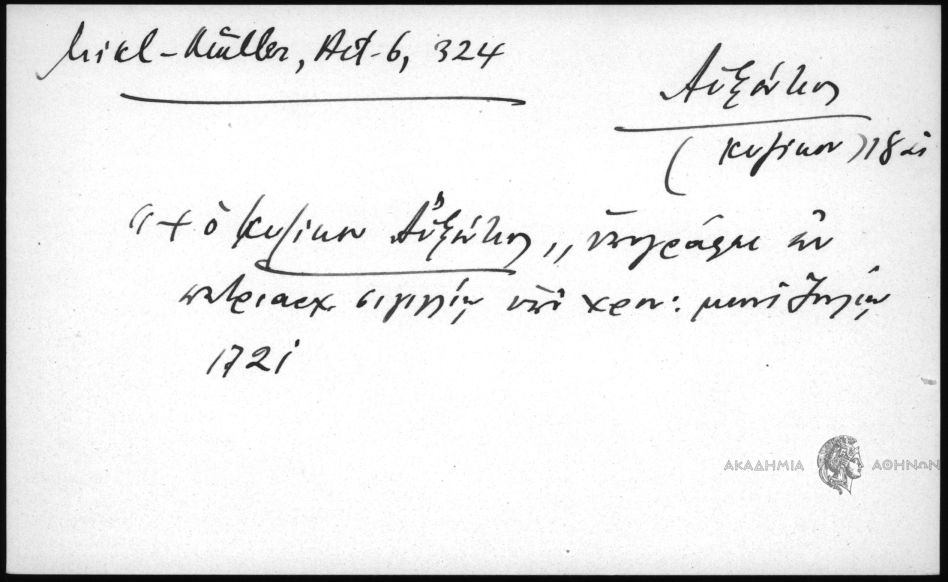 Mikl-Müller, Act. 6, 324
Αὐξέντιος
(Κυζίκου) 1821
"+ ὁ Κυζίκου Αὐξέντιος,, ὑπογράφει ἐν
πατριαρχ. σιγιλλίῳ ὑπὸ χρον: μηνὶ Ἰουλίῳ
1721
ΑΚΑΔΗΜΙΑ ΑΘΗΝΩΝ